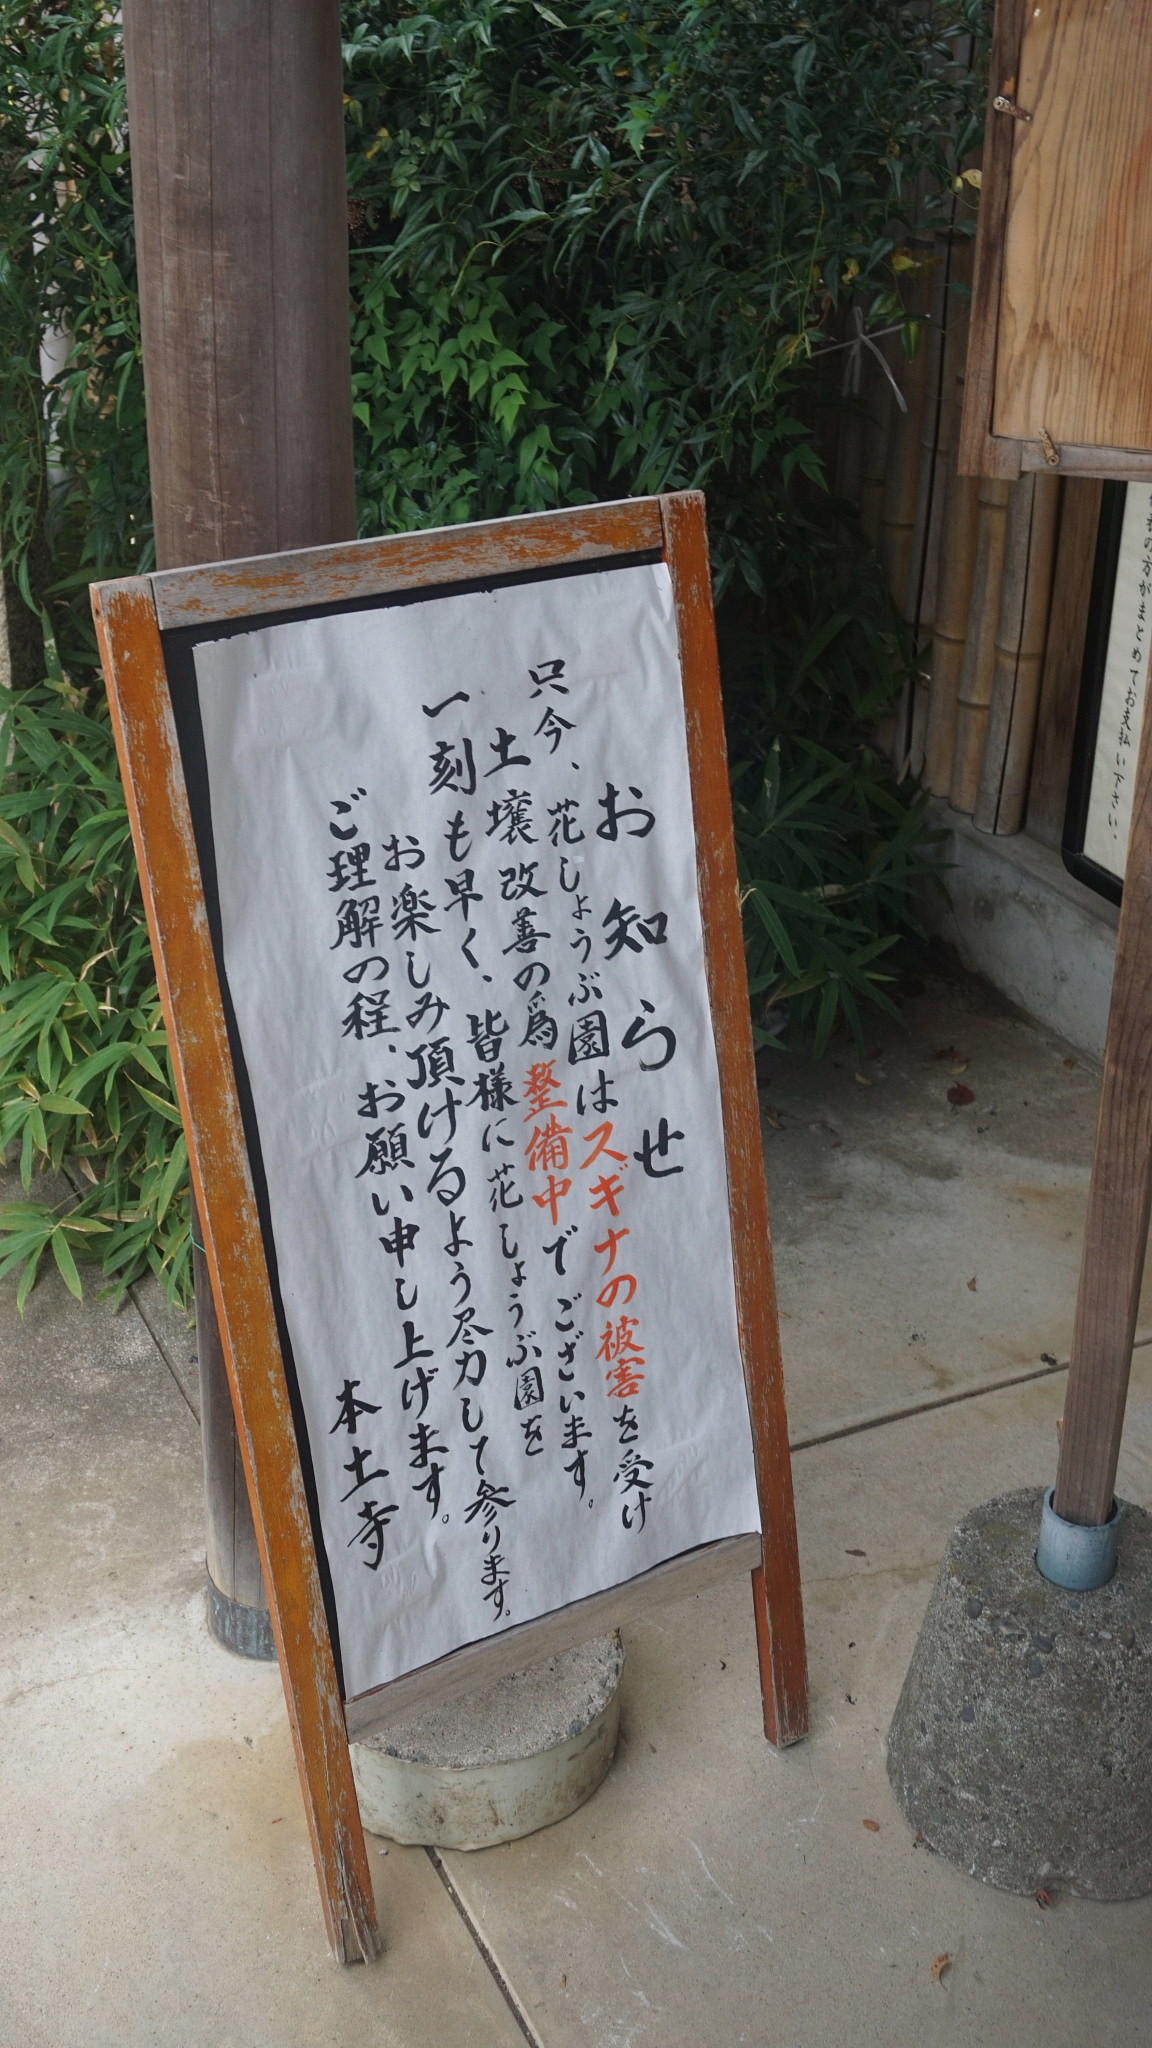 お知らせ
只今、花しょうぶ園はスギナの被害を受け
土壌改善の為整備中でございます。
一刻も早く、皆様に花しょうぶ園を
お楽しみ頂けるよう尽力して参ります。
ご理解の程、お願い申し上げます。
本土寺
の方がまとめてお支払い下さい。